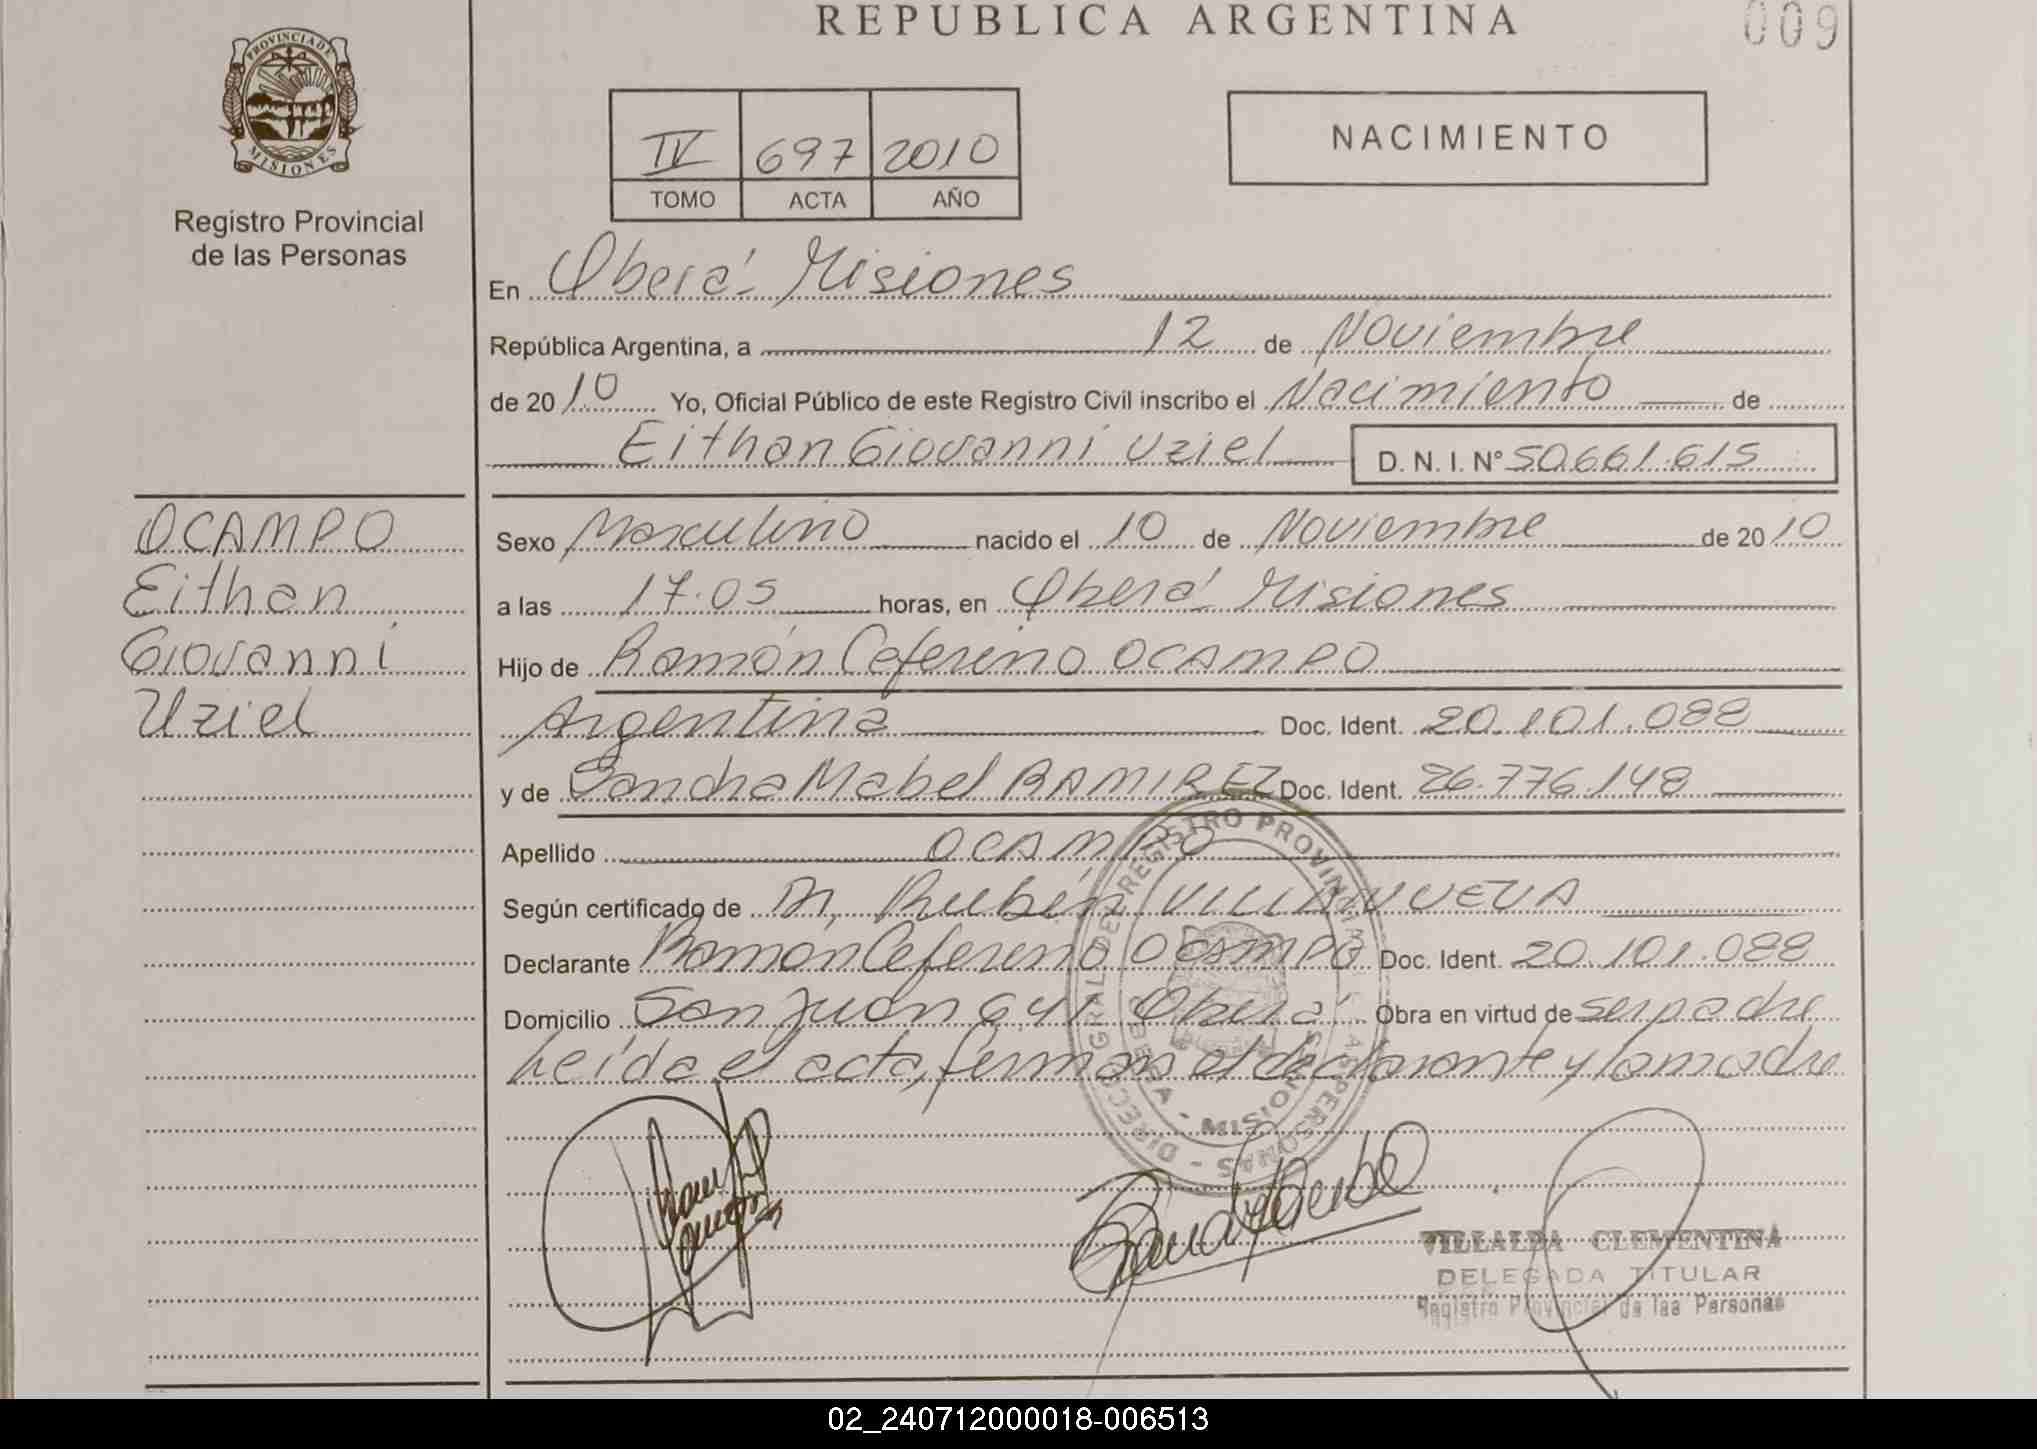 REPUBLICA ARGENTINA
009
PROVINCIA DE MISIONES
Registro Provincial
de las Personas
IV 697 2010
TOMO ACTA AÑO
NACIMIENTO
En Oberá Misiones
República Argentina, a 12 de Noviembre
de 2010 Yo, Oficial Público de este Registro Civil inscribo el Nacimiento de
Eithan Giovanni Uziel D. N. I. N° 50.661.615
OCAMPO
Eithan
Giovanni
Uziel
Sexo Masculino nacido el 10 de Noviembre de 2010
a las 17.05 horas, en Oberá Misiones
Hijo de Ramón Ceferino OCAMPO
Argentina Doc. Ident. 20.101.088
y de Sandra Mabel RAMIREZ Doc. Ident. 26.776.148
Apellido OCAMPO
Según certificado de Dr. Rubén VILLANUEVA
Declarante Ramón Ceferino OCAMPO Doc. Ident. 20.101.088
Domicilio San Juan Oberá Obra en virtud de ser padre
Leída el acta, firman el declarante y la madre
DIRECC GRAL DE REGISTRO PROVINCIAL LAS PERSONAS - OBERA - MISIONES
VILLALBA CLEMENTINA
DELEGADA TITULAR
Registro Provincial de las Personas
02_240712000018-006513